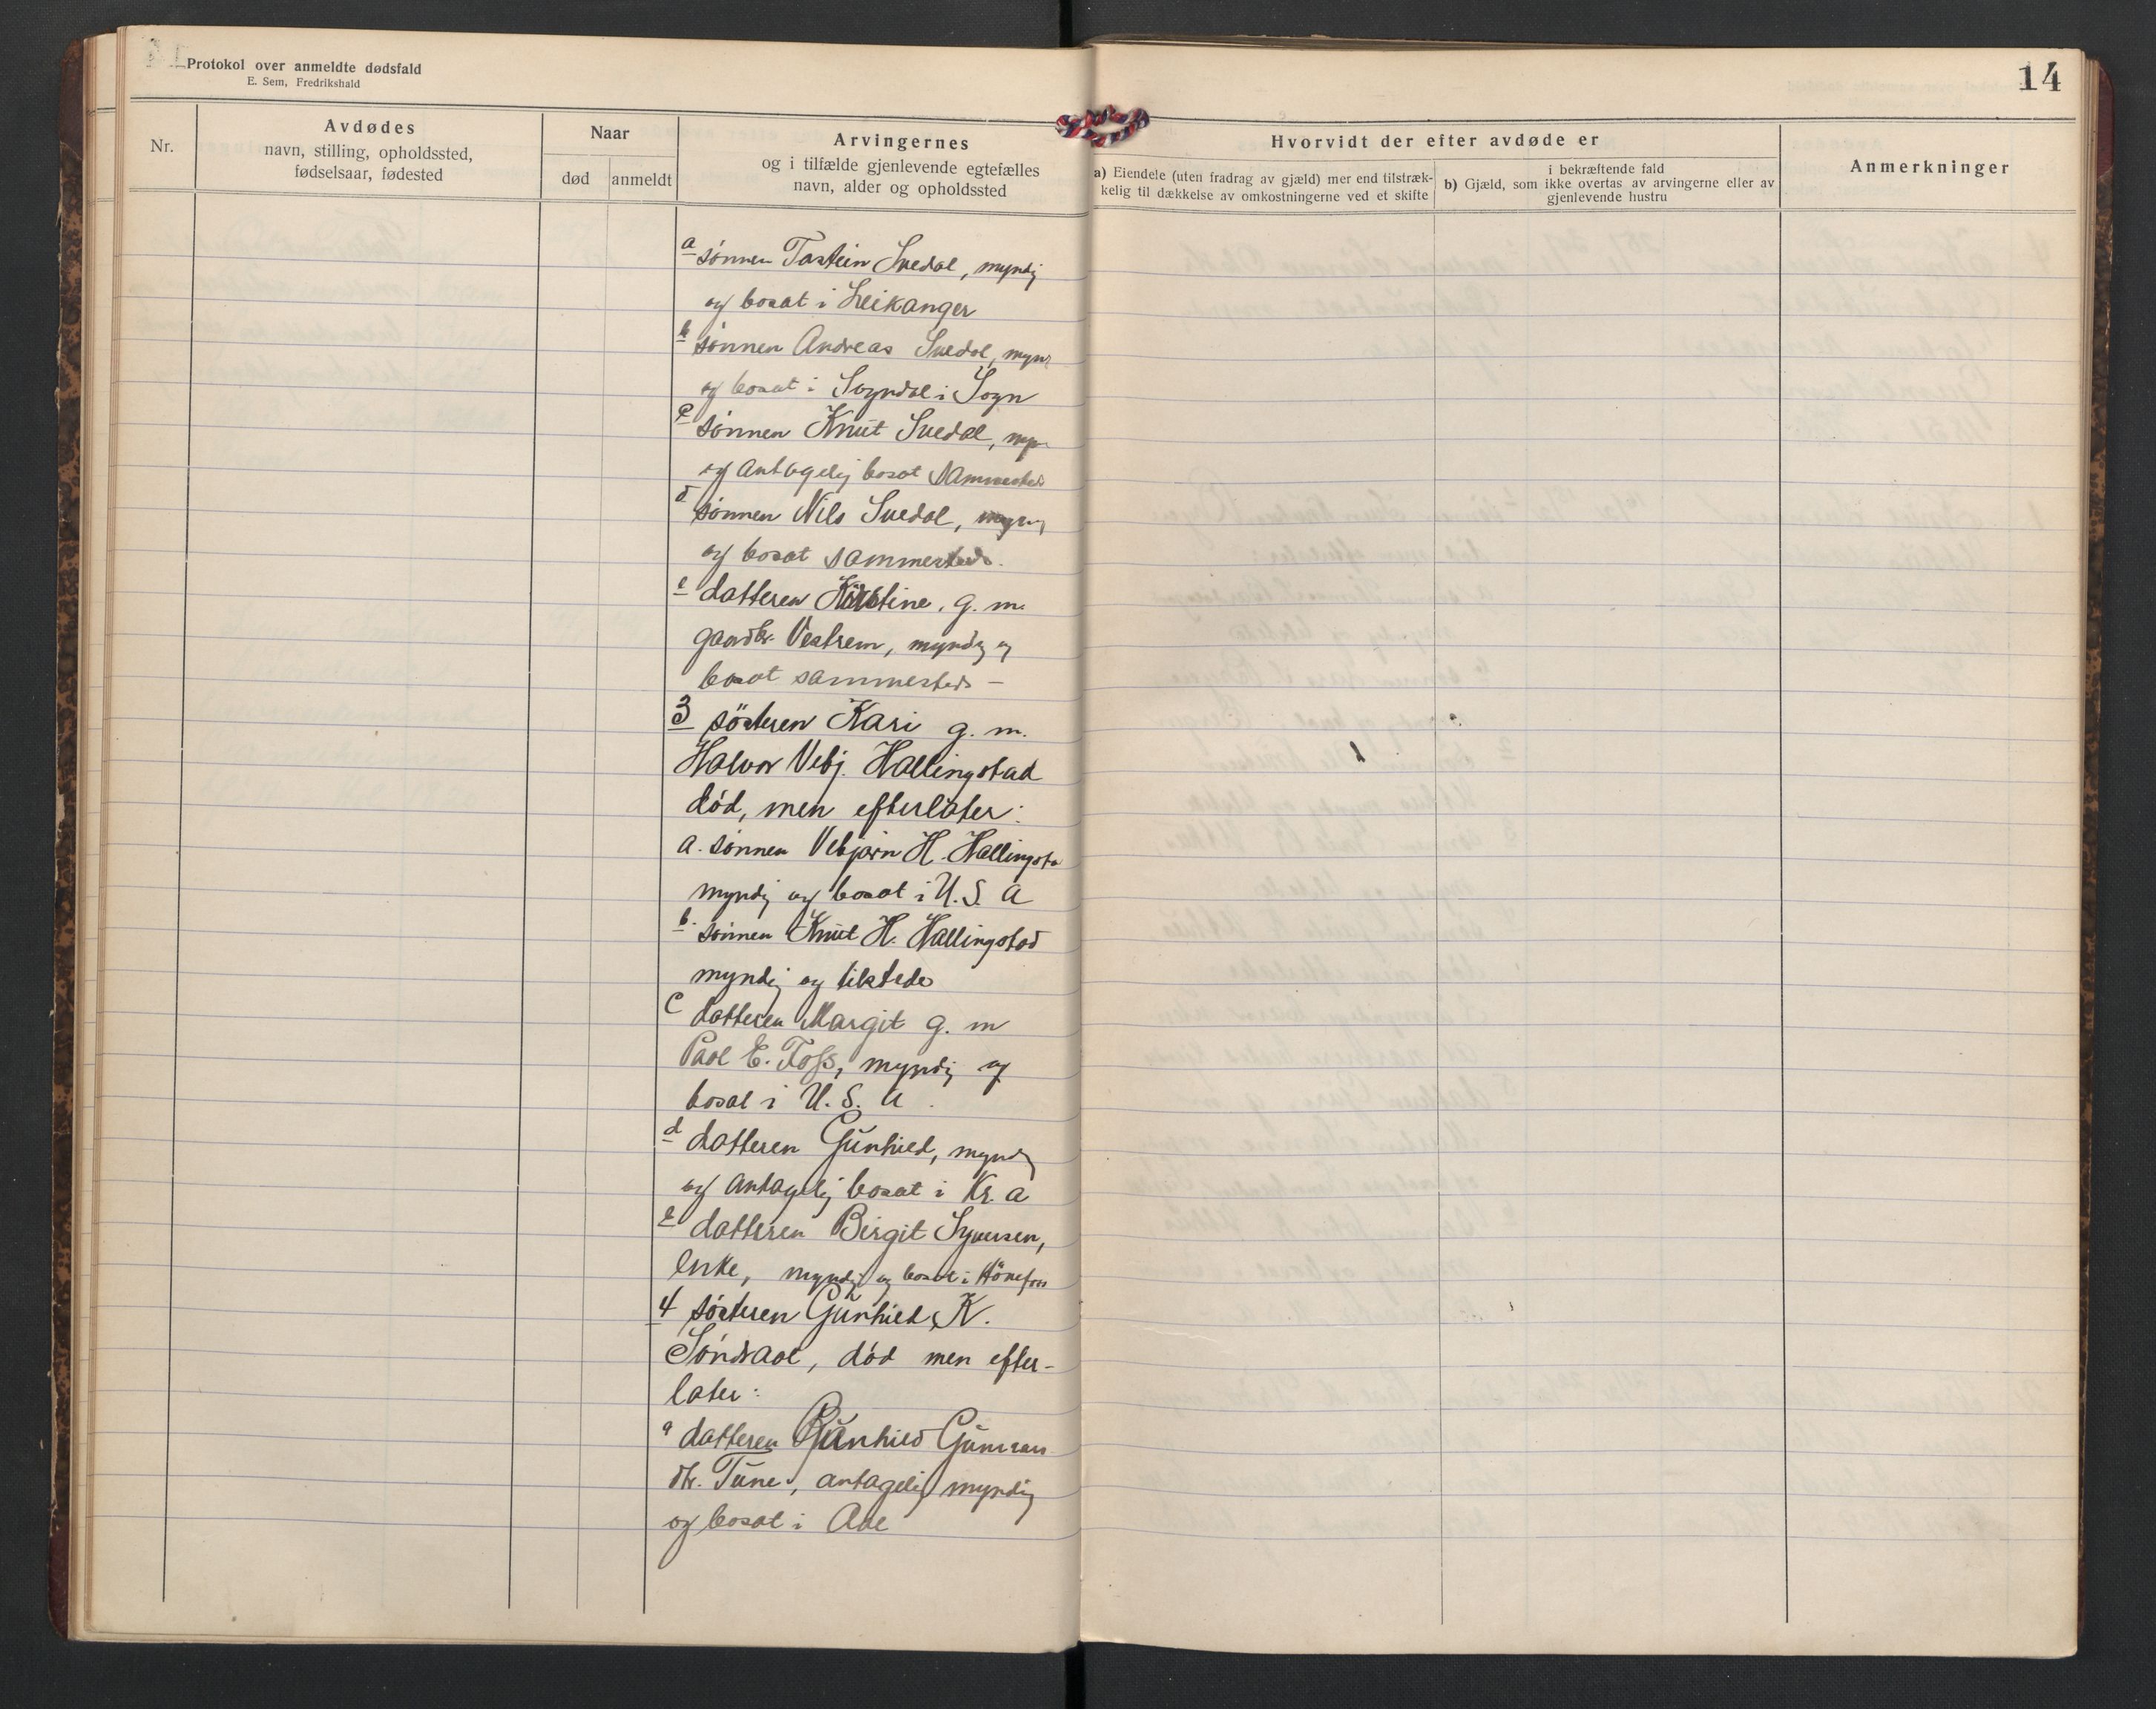 Protokol over anmeldte dødsfald
E. Sem, Fredrikshald
14
Nr.
Avdødes
navn, stilling, opholdssted,
fødselsaar, fødested
Naar
død
anmeldt
Arvingernes
og i tilfælde gjenlevende egtefælles
navn, alder og opholdssted
Hvorvidt der efter avdøde er
a) Eiendele (uten fradrag av gjæld) mer end tilstræk-
kelig til dækkelse av omkostningerne ved et skifte
i bekræftende fald
b) Gjæld, som ikke overtas av arvingerne eller av
gjenlevende hustru
Anmerkninger
a sønnen Tostein Svedal, myndig
og bosat i Leikanger
b sønnen Andreas Svedal, mynd
og bosat i Sogndal i Sogn
c sønnen Knut Svedal, myn
og antagelig bosat sammesteds
d sønnen Nils Svedal, mynd
og bosat sammesteds.
e datteren Kirstine, g. m.
gaardbr. Vestrem, myndig og
bosat sammesteds –
3 søsteren Kari g. m.
Halvor Vebj. Hallingstad
død, men efterlater:
a. sønnen Vebjørn H. Hallingsta
myndig og bosat i U. S. A
b. sønnen Knut H. Hallingstad
myndig og tilstede
c datteren Margit g. m
Paol E. Foss, myndig og
bosat i U. S. A.
d datteren Gunhild, myndig
og antagelig bosat i Kr. a
e datteren Birgit Syversen,
enke, myndig og bosat i Hönefoss
4 søsteren Gunhild K.
Søndraal, død men efter-
later:
a datteren Gunhild Gunnars
dtr. Tune, antagelig myndig
og bosat i Aal